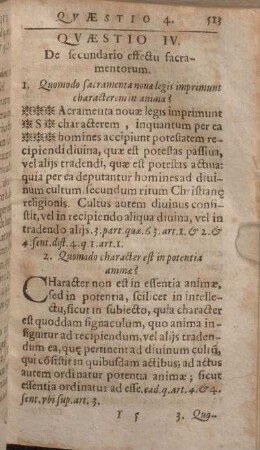 QVÆSTIO 4. 513
QVÆSTIO IV.
De secundario effectu sacra-
mentorum.
1. Quomodo sacramenta nouæ legis imprimunt
characterem in anima?
SAcramenta nouæ legis imprimunt
characterem, inquantum per ea
homines accipiunt potestatem re-
cipiendi diuina, quæ est potestas passiua,
vel alijs tradendi, quæ est potestas actiua:
quia per ea deputantur homines ad diui-
num cultum secundum ritum Christianę
religionis. Cultus autem diuinus consi-
stit, vel in recipiendo aliqua diuina, vel in
tradendo alijs. 3. part. quæ. 63. art. 1. & 2. &
4. sent. dist. 4. q. 1. art. 1.
2. Quomodo character est in potentia
animæ?
CHaracter non est in essentia animæ,
sed in potentia, scilicet in intelle-
ctu, sicut in subiecto, quia character
est quoddam signaculum, quo anima in-
signitur ad recipiendum, vel alijs traden-
dum ea, quę pertinent ad diuinum cultũ,
qui cõsistit in quibusdam actibus; ad actus
autem ordinatur potentia animæ; sicut
essentia ordinatur ad esse. ead. q. art. 4. & 4.
sent. vbi sup. art. 3.
Y 5 3. Quo-